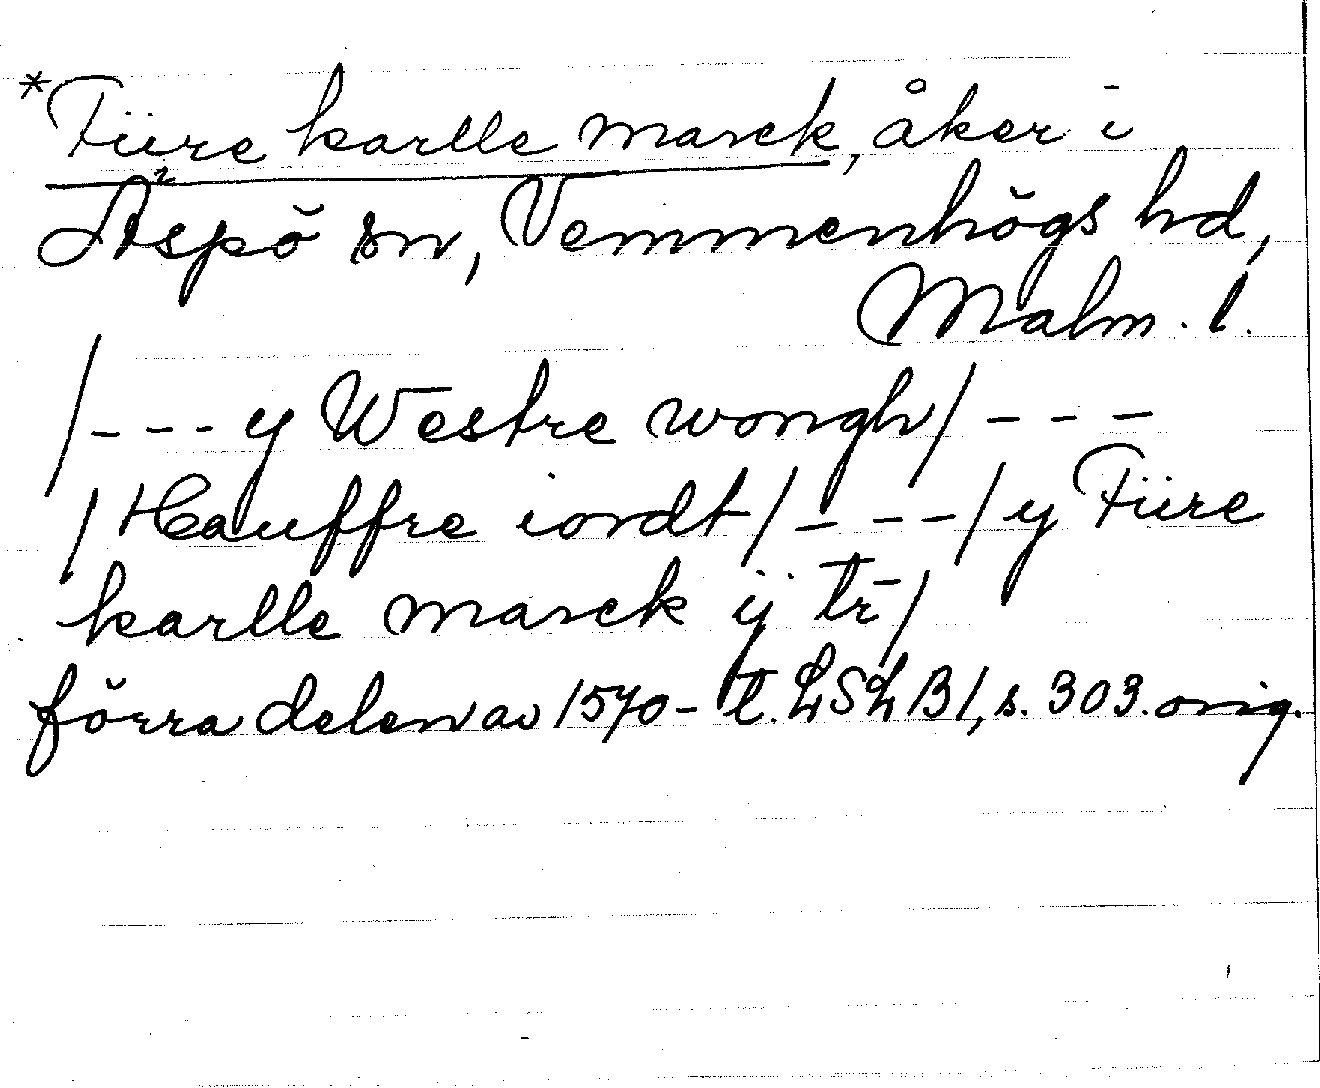 *Füre karlle marck, åker i
Äspö sn, Vemmenhögs hd,
Malm. l.
/--- y Westre wongh/ ---
/Hauffre iordt/ ---/ y Füre
karlle marck ij tr̄/
förra delen av 1570-t. LSLB 1, s. 303. orig.